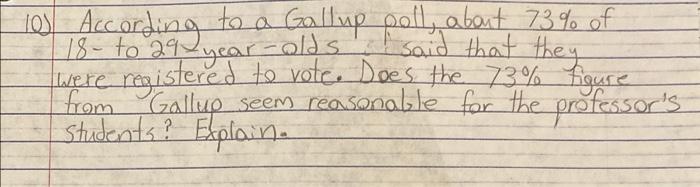 10) According to a Gallup poll, about 73% of
18- to 29-year-olds said that they
were registered to vote. Does the 73% figure
from Gallup seem reasonable for the professor's
students? Explain.